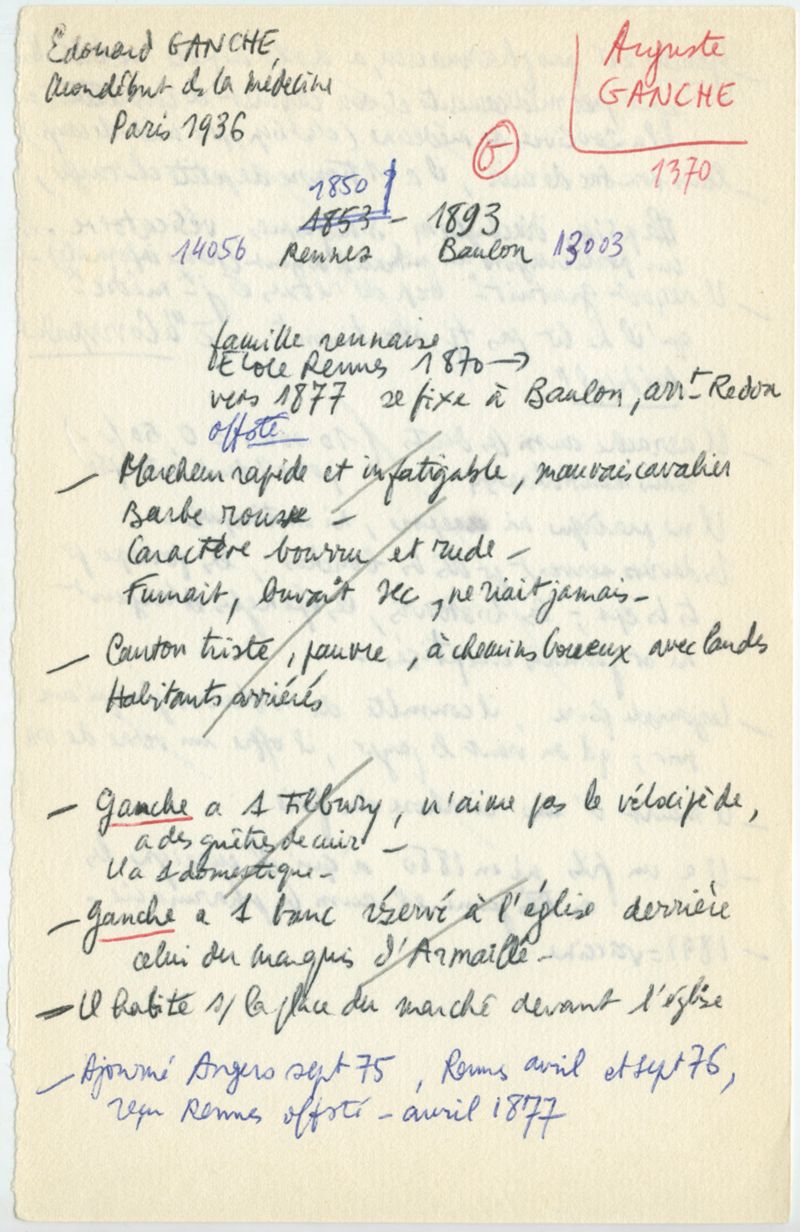 Edouard GANCHE,
Mon début de la médecine
Paris 1936
Auguste
GANCHE
1370
1850
1853 - 1893
14056 Rennes Baulon 13003
famille rennaise
Ecole Rennes 1870 →
vers 1877 se fixe à Baulon, arrt Redon
offsté
- Marcheur rapide et infatigable, mauvais cavalier
Barbe rousse -
Caractère bourru et rude -
Fumait, buvait sec, ne riait jamais -
- Canton triste, pauvre, à chemins boueux avec landes
Habitants arriérés
- Ganche a 1 Tilbury, n'aime pas le vélocipède,
a des guêtres de cuir -
Il a 1 domestique -
- Ganche a 1 banc réservé à l'église derrière
celui du marquis d'Armaillé -
- Il habite s/ la place du marché devant l'église
- Ajourné Angers sept 75, Rennes avril et sept 76,
reçu Rennes offsté - avril 1877